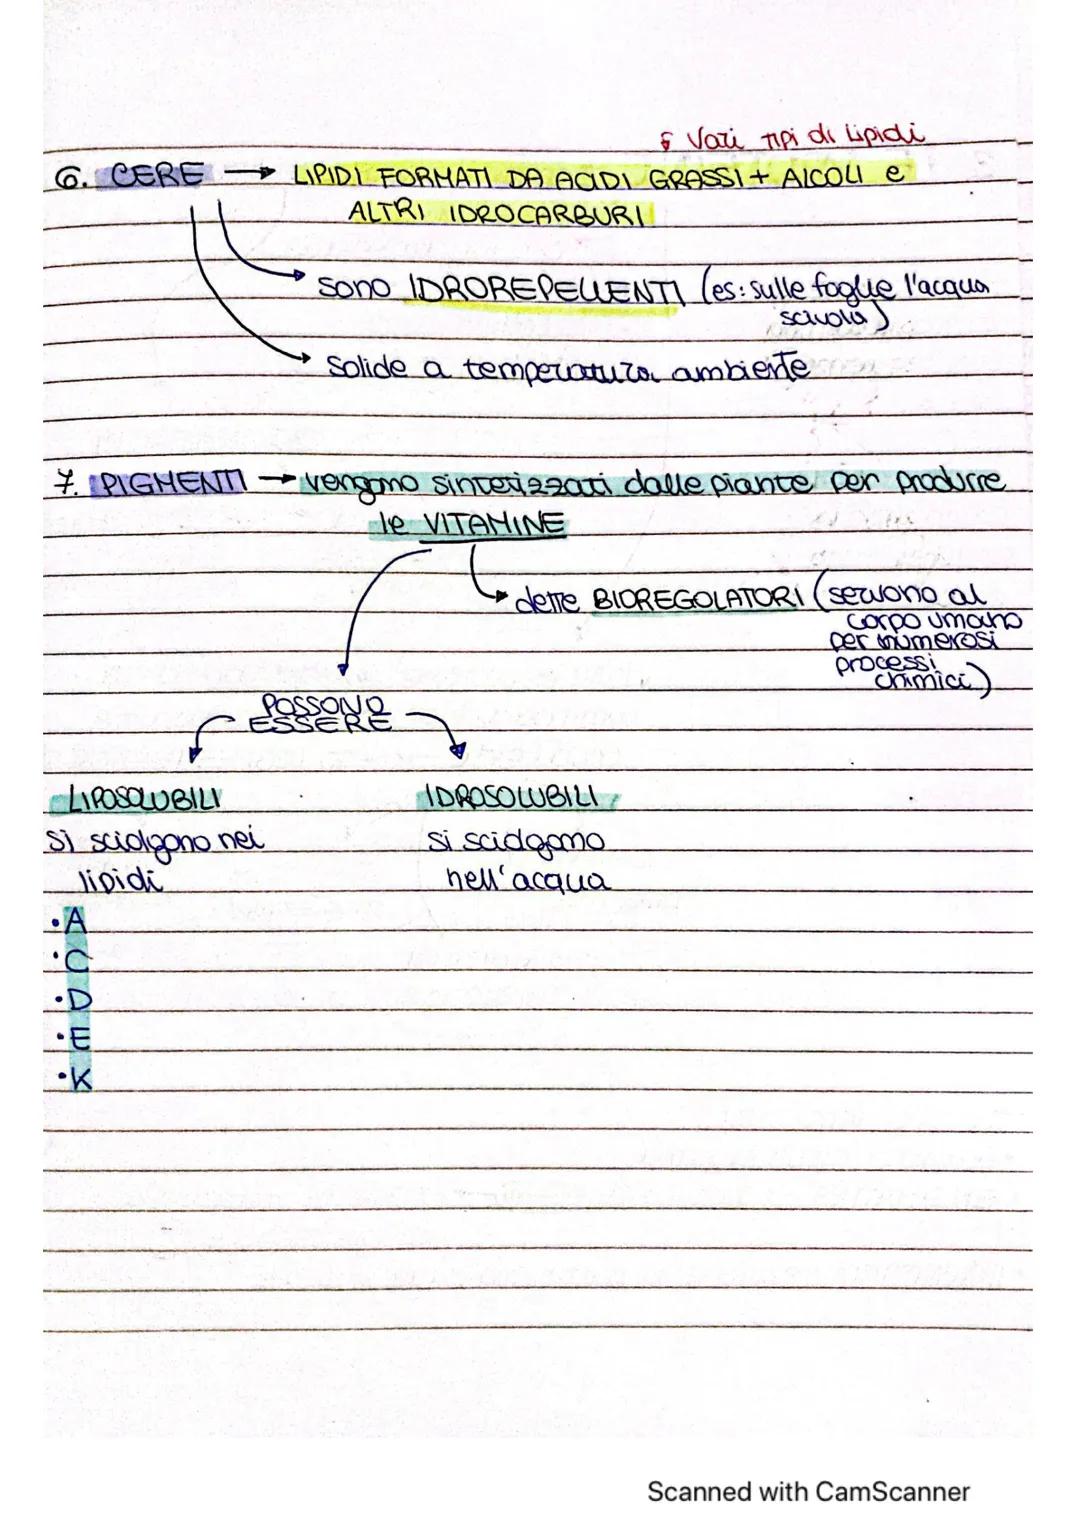 Vari tipi di lipidi
6. CERE → LIPIDI FORMATI DA ACIDI GRASSI + ALCOLI e
ALTRI IDROCARBURI
sono IDROREPELLENTI (es: sulle foglie l'acqua
scivola)
solide a temperatura ambiente
7. PIGMENTI → vengono sintetizzati dalle piante per produrre
le VITAMINE
dette BIOREGOLATORI (servono al
corpo umano
per numerosi
processi
chimici)
POSSONO
ESSERE
LIPOSOLUBILI
si sciolgono nei
lipidi
• A
• C
• D
• E
• K
IDROSOLUBILI
si sciolgono
nell'acqua
Scanned with CamScanner